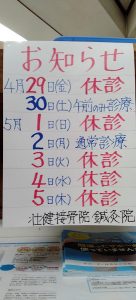 お知らせ
4月29日(金) 休診
30日(土)午前のみ診療
5月1日(日) 休診
2日(月)通常診療
3日(火) 休診
4日(水) 休診
5日(木) 休診
壮健接骨院 鍼灸院